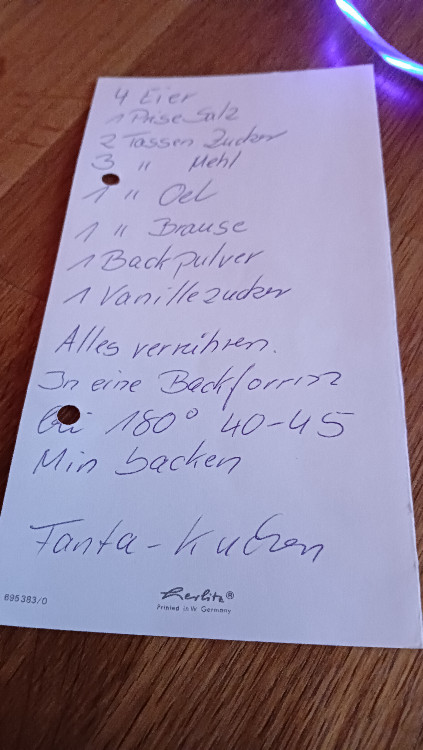 4 Eier
1 Prise Salz
2 Tassen Zucker
3 " Mehl
1 " Oel
1 " Brause
1 Backpulver
1 Vanillezucker
Alles verrühren.
In eine Backform
bei 180° 40-45
Min backen
Fanta-Kuchen
695383/0
herlitz®
Printed in W. Germany